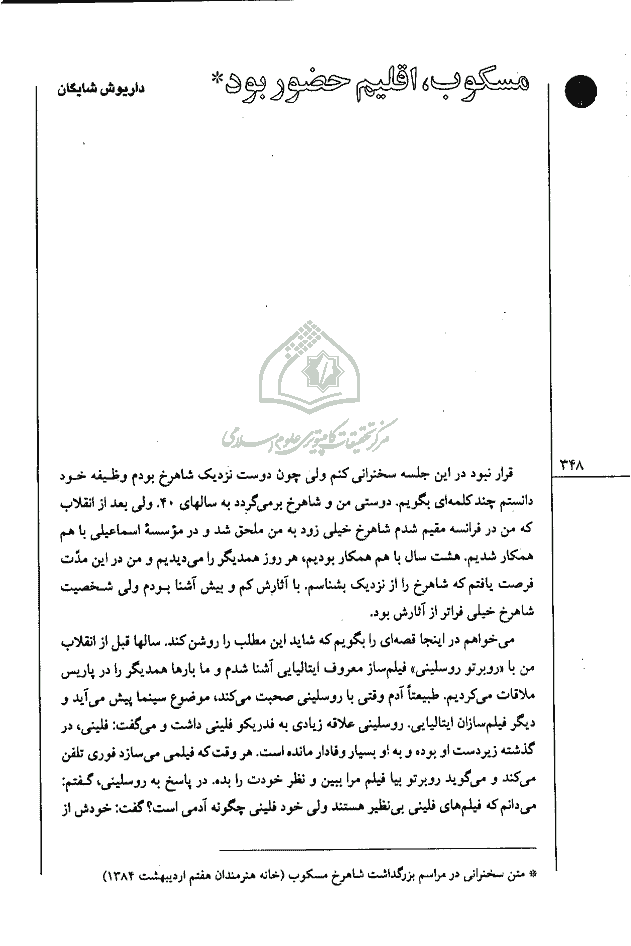 مسکوب، اقلیم حضور بود*
داریوش شایگان
مرکز تحقیقات کامپیوتری علوم اسلامی
۳۴۸
قرار نبود در این جلسه سخنرانی کنم ولی چون دوست نزدیک شاهرخ بودم وظیفه خود
دانستم چند کلمه‌ای بگویم. دوستی من و شاهرخ برمی‌گردد به سالهای ۴۰. ولی بعد از انقلاب
که من در فرانسه مقیم شدم شاهرخ خیلی زود به من ملحق شد و در مؤسسهٔ اسماعیلی با هم
همکار شدیم. هشت سال با هم همکار بودیم، هر روز همدیگر را می‌دیدیم و من در این مدّت
فرصت یافتم که شاهرخ را از نزدیک بشناسم. با آثارش کم و بیش آشنا بودم ولی شخصیت
شاهرخ خیلی فراتر از آثارش بود.
می‌خواهم در اینجا قصه‌ای را بگویم که شاید این مطلب را روشن کند. سالها قبل از انقلاب
من با «روبرتو روسلینی» فیلم‌ساز معروف ایتالیایی آشنا شدم و ما بارها همدیگر را در پاریس
ملاقات می‌کردیم. طبیعتاً آدم وقتی با روسلینی صحبت می‌کند، موضوع سینما پیش می‌آید و
دیگر فیلم‌سازان ایتالیایی. روسلینی علاقه زیادی به فدریکو فلینی داشت و می‌گفت: فلینی، در
گذشته زیردست او بوده و به او بسیار وفادار مانده است. هر وقت که فیلمی می‌سازد فوری تلفن
می‌کند و می‌گوید روبرتو بیا فیلم مرا ببین و نظر خودت را بده. در پاسخ به روسلینی، گفتم:
می‌دانم که فیلم‌های فلینی بی‌نظیر هستند ولی خود فلینی چگونه آدمی است؟ گفت: خودش از
* متن سخنرانی در مراسم بزرگداشت شاهرخ مسکوب (خانه هنرمندان هفتم اردیبهشت ۱۳۸۴)